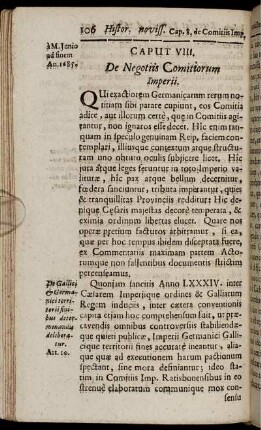 106 Histor. noviss. Cap. 8. de Comitiis Imp.
à M. Jenio
ad finem
An. 1685.
CAPUT VIII.
De Negotiis Comitiorum
Imperii.
QUi exactiorem Germanicarum rerum no-
titiam sibi parare cupiunt, eos Comitia
adire, aut illorum certè, quæ in Comitiis agi-
rantur, non ignaros esse decet. Hic enim tan-
quam in speculo genuinam Reip. faciem con-
templari, illiusque contextum atque structu-
ram uno obtutu oculis subjicere licet. Hic
jura atque leges feruntur in toto Imperio va-
lituræ, hic pax atque bellum decernitur,
fœdera sanciuntur, tributa imperantur, quies
& tranquillitas Provinciis redditur: Hic de-
nique Cæsaris majestas decorè temperata, &
eximia ordinum libertas elucet. Quare nos
operæ pretium facturos arbitramur, si ea,
quæ per hoc tempus ibidem disceptata fuere,
ex Commentariis maximam partem Acto-
rumque non fallentibus documentis strictim
percenseamus.
De Galliæ
& Germa-
niæ terri-
torii fini-
bus deter-
minandis
delibera-
tur.
Art. 10.
Quoniam sancitis Anno LXXXIV. inter
Cæsarem Imperiique ordines & Galliarum
Regem induciis, inter cætera conventionis
capita etiam hoc comprehensum fuit, ut præ-
cavendis omnibus controversiis stabiliendæ-
que quieti publicæ, Imperii Germanici Galli-
cique territorii fines accuratè ineantur, alia-
que quæ ad executionem harum pactionum
spectant, sine mora definiantur; ideo sta-
tim in Comitiis Imp. Ratisbonensibus in eo
strenuè elaboratum communique mox con-
sensu